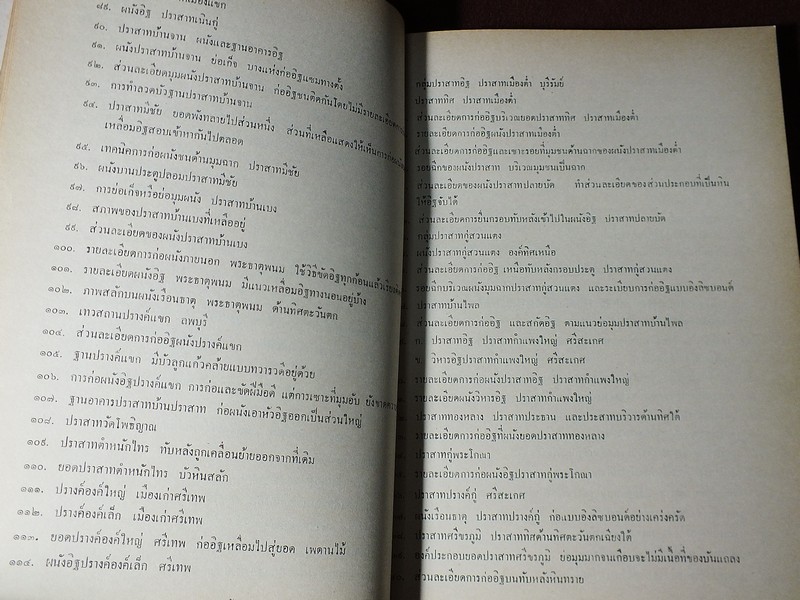 ๘๙. ผนังอิฐ ปราสาทเนินกู่
๙๐. ปราสาทบ้านจาน ผนังและฐานอาคารอิฐ
๙๑. ผนังปราสาทบ้านจาน ย่อเก็จ บางแห่งก่ออิฐแซมทางตั้ง
๙๒. ส่วนละเอียดมุมผนังปราสาทบ้านจาน ก่ออิฐชนติดกันโดยไม่มีรายละเอียด
๙๓. การทำลวดบัวฐานปราสาทบ้านจาน
๙๔. ปราสาทมีชัย ยอดพังทลายไปส่วนหนึ่ง ส่วนที่เหลือแสดงให้เห็นการก่อ
เหลื่อมอิฐสอบเข้าหากันไปตลอด
๙๕. เทคนิคการก่อผนังชนด้านมุมฉาก ปราสาทมีชัย
๙๖. ผนังบานประตูปลอมปราสาทมีชัย
๙๗. การย่อเก็จหรือย่อมุมผนัง ปราสาทบ้านเบง
๙๘. สภาพของปราสาทบ้านเบงที่เหลืออยู่
๙๙. ส่วนละเอียดของผนังปราสาทบ้านเบง
๑๐๐. รายละเอียดการก่อผนังภายนอก พระธาตุพนม ใช้วิธีขัดอิฐทุกก้อนแล้วเรียง
๑๐๑. รายละเอียดผนังอิฐ พระธาตุพนม มีแนวเหลื่อมอิฐทางนอนอยู่บ้าง
๑๐๒. ภาพสลักบนผนังเรือนธาตุ พระธาตุพนม ด้านทิศตะวันตก
๑๐๓. เทวสถานปรางค์แขก ลพบุรี
๑๐๔. ส่วนละเอียดการก่ออิฐผนังปรางค์แขก
๑๐๕. ฐานปรางค์แขก มีบัวลูกแก้วคล้ายแบบทวารวดีอยู่ด้วย
๑๐๖. การก่อผนังอิฐปรางค์แขก การก่อและขัดฝีมือดี แต่การเซาะที่มุมอับ ยังขาด
๑๐๗. ฐานอาคารปราสาทบ้านปราสาท ก่อผนังเอาหัวอิฐออกเป็นส่วนใหญ่
๑๐๘. ปราสาทวัดโพธิญาณ
๑๐๙. ปราสาทตำหนักไทร ทับหลังถูกเคลื่อนย้ายออกจากที่เดิม
๑๑๐. ยอดปราสาทตำหนักไทร บัวหินสลัก
๑๑๑. ปรางค์องค์ใหญ่ เมืองเก่าศรีเทพ
๑๑๒. ปรางค์องค์เล็ก เมืองเก่าศรีเทพ
๑๑๓. ยอดปรางค์องค์ใหญ่ ศรีเทพ ก่ออิฐเหลื่อมไปสู่ยอด เพดานไม้
๑๑๔. ผนังอิฐปรางค์องค์เล็ก ศรีเทพ
กลุ่มปราสาทอิฐ ปราสาทเมืองต่ำ บุรีรัมย์
ปราสาททิศ ปราสาทเมืองต่ำ
ส่วนละเอียดการก่ออิฐบริเวณยอดปราสาททิศ ปราสาทเมืองต่ำ
รายละเอียดการก่ออิฐผนังปราสาทเมืองต่ำ
ส่วนละเอียดการก่ออิฐและเซาะรอยที่มุมชนด้านฉากของผนังปราสาทเมืองต่ำ
รอยถีกของผนังปราสาท บริเวณมุมชนเป็นฉาก
ส่วนละเอียดของผนังปราสาทปลายบัด ทำส่วนละเอียดของส่วนประกอบที่เป็นหิน
ให้อิฐจับได้
ส่วนละเอียดการยื่นกรอบทับหลังเข้าไปในผนังอิฐ ปราสาทปลายบัด
กลุ่มปราสาทกู่สวนแตง
ผนังปราสาทกู่สวนแตง องค์ทิศเหนือ
ส่วนละเอียดการก่ออิฐ เหนือทับหลังกรอบประตู ปราสาทกู่สวนแตง
รอยถีบบริเวณผนังมุมฉากปราสาทกู่สวนแตง และระเบียบการก่ออิฐแบบอิงลิชบอนด์
ปราสาทบ้านไพล
ส่วนละเอียดการก่ออิฐ และสกัดอิฐ ตามแนวย่อมุมปราสาทบ้านไพล
ก. ปราสาทอิฐ ปราสาทกำแพงใหญ่ ศรีสะเกศ
ข. วิหารอิฐปราสาทกำแพงใหญ่ ศรีสะเกศ
รายละเอียดการก่อผนังปราสาทอิฐ ปราสาทกำแพงใหญ่
รายละเอียดผนังวิหารอิฐ ปราสาทกำแพงใหญ่
ปราสาททองหลาง ปราสาทประธาน และประสาทบริวารด้านทิศใต้
รายละเอียดการก่ออิฐที่ผนังยอดปราสาททองหลาง
ปราสาทกู่พระโกณา
รายละเอียดการก่อผนังอิฐปราสาทกู่พระโกณา
ปราสาทปรางค์กู่ ศรีสะเกศ
ผนังเรือนธาตุ ปราสาทปรางค์กู่ ก่อแบบอิงลิชบอนด์อย่างเคร่งครัด
ปราสาทศรีขรภูมิ ปราสาททิศด้านทิศตะวันตกเฉียงใต้
องค์ประกอบยอดปราสาทศรีขรภูมิ ย่อมุมมากจนเกือบจะไม่มีเนื้อที่ของบันแถลง
ส่วนละเอียดการก่ออิฐบนทับหลังหินทราย